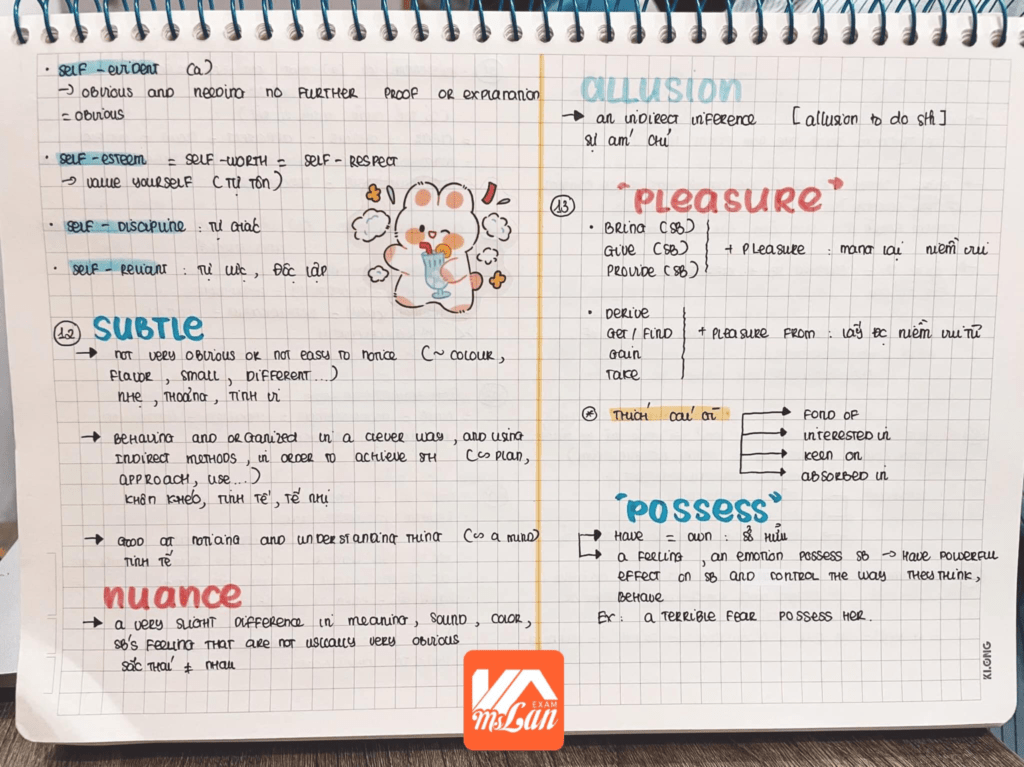 • SELF - EVIDENT (a)
→ OBVIOUS AND NEEDING NO FURTHER PROOF OR EXPLANATION
= OBVIOUS
• SELF - ESTEEM = SELF - WORTH = SELF - RESPECT
→ VALUE YOURSELF (TỰ TÔN)
• SELF - DISCIPLINE : TỰ GIÁC
• SELF - RELIANT : TỰ LỰC, ĐỘC LẬP
12 SUBTLE
→ NOT VERY OBVIOUS OR NOT EASY TO NOTICE (~ COLOUR,
FLAVOR, SMALL, DIFFERENT...)
NHẸ, THOẢNG, TINH VI
→ BEHAVING AND ORGANIZED IN A CLEVER WAY, AND USING
INDIRECT METHODS, IN ORDER TO ACHIEVE STH (∞ PLAN,
APPROACH, USE...)
KHÔN KHÉO, TINH TẾ, TẾ NHỊ
→ GOOD AT NOTICING AND UNDERSTANDING THING (∞ A MIND)
TINH TẾ
nuance
→ A VERY SLIGHT DIFFERENCE IN MEANING, SOUND, COLOR,
SB'S FEELING THAT ARE NOT USUALLY VERY OBVIOUS
SẮC THÁI ≠ NHAU
allusion
→ an indirect inference [allusion to do sth]
sự ám chỉ
13 "PLEASURE"
• BRING (SB)
GIVE (SB) + PLEASURE : MANG LẠI NIỀM VUI
PROVIDE (SB)
• DERIVE
GET / FIND + PLEASURE FROM : LẤY ĐC NIỀM VUI TỪ
GAIN
TAKE
* THÍCH CÁI GÌ → FOND OF
→ INTERESTED IN
→ KEEN ON
→ ABSORBED IN
"POSSESS"
→ HAVE = OWN : SỞ HỮU
→ A FEELING, AN EMOTION POSSESS SB → HAVE POWERFUL
EFFECT ON SB AND CONTROL THE WAY THEY THINK,
BEHAVE
Ex: A TERRIBLE FEAR POSSESS HER.
KLONG
EXAM
MsLan